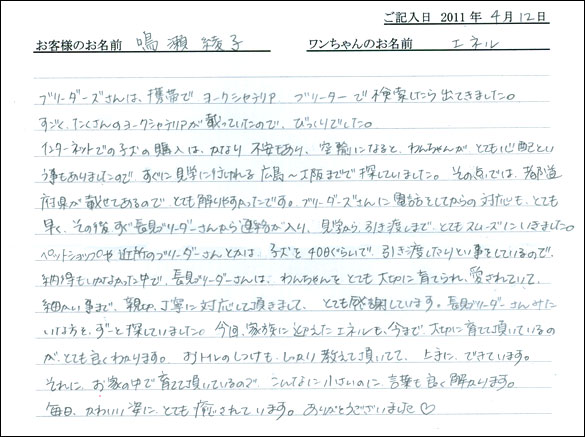 ご記入日 2011年 4月 12日
お客様のお名前 鳴瀬綾子 ワンちゃんのお名前 エネル
ブリーダーズさんは、携帯で ヨークシャテリア ブリーダー で 検索したら 出てきました。
すごく、たくさんのヨークシャテリアが載っていたので、びっくりでした。
インターネットでの子犬の購入は、かなり 不安もあり、空輸になると、わんちゃんが とても心配とい
う事もありましたので すぐに 見学に行かれる 広島〜大阪までで 探していました。 その点では、都道
府県が 載せてあるので とても 解りやすかったです。 ブリーダーズさんに 問合をしてからの対応も、とても
早く、その後 すぐ 長見ブリーダーさんから 連絡が入り、見学から 引き渡しまで、とてもスムーズにいきました。
ペットショップや 近所のブリーダーさんとかは、子犬を 40日ぐらいで、引き渡したりという事をしているので、
納得もいかなかった中で、長見ブリーダーさんは、わんちゃんを とても 大切に育てられ、愛されていて、
細かい事まで、親切、丁寧に 対応して頂きまして、 とても感謝しています。長見ブリーダーさんみた
いな方を、ずーと 探していました。 今回、家族に 迎えた エネルも、今まで、大切に育てて頂いているの
が、とても良くわかります。 おトイレのしつけも、しっかり 教えて頂いてて、 上手に、できています。
それに、お家の中で 育てて頂いているので、こんなに 小さいのに 言葉も良く 解かります。
毎日、かわいい姿に とても 癒されています。ありがとうございました♡